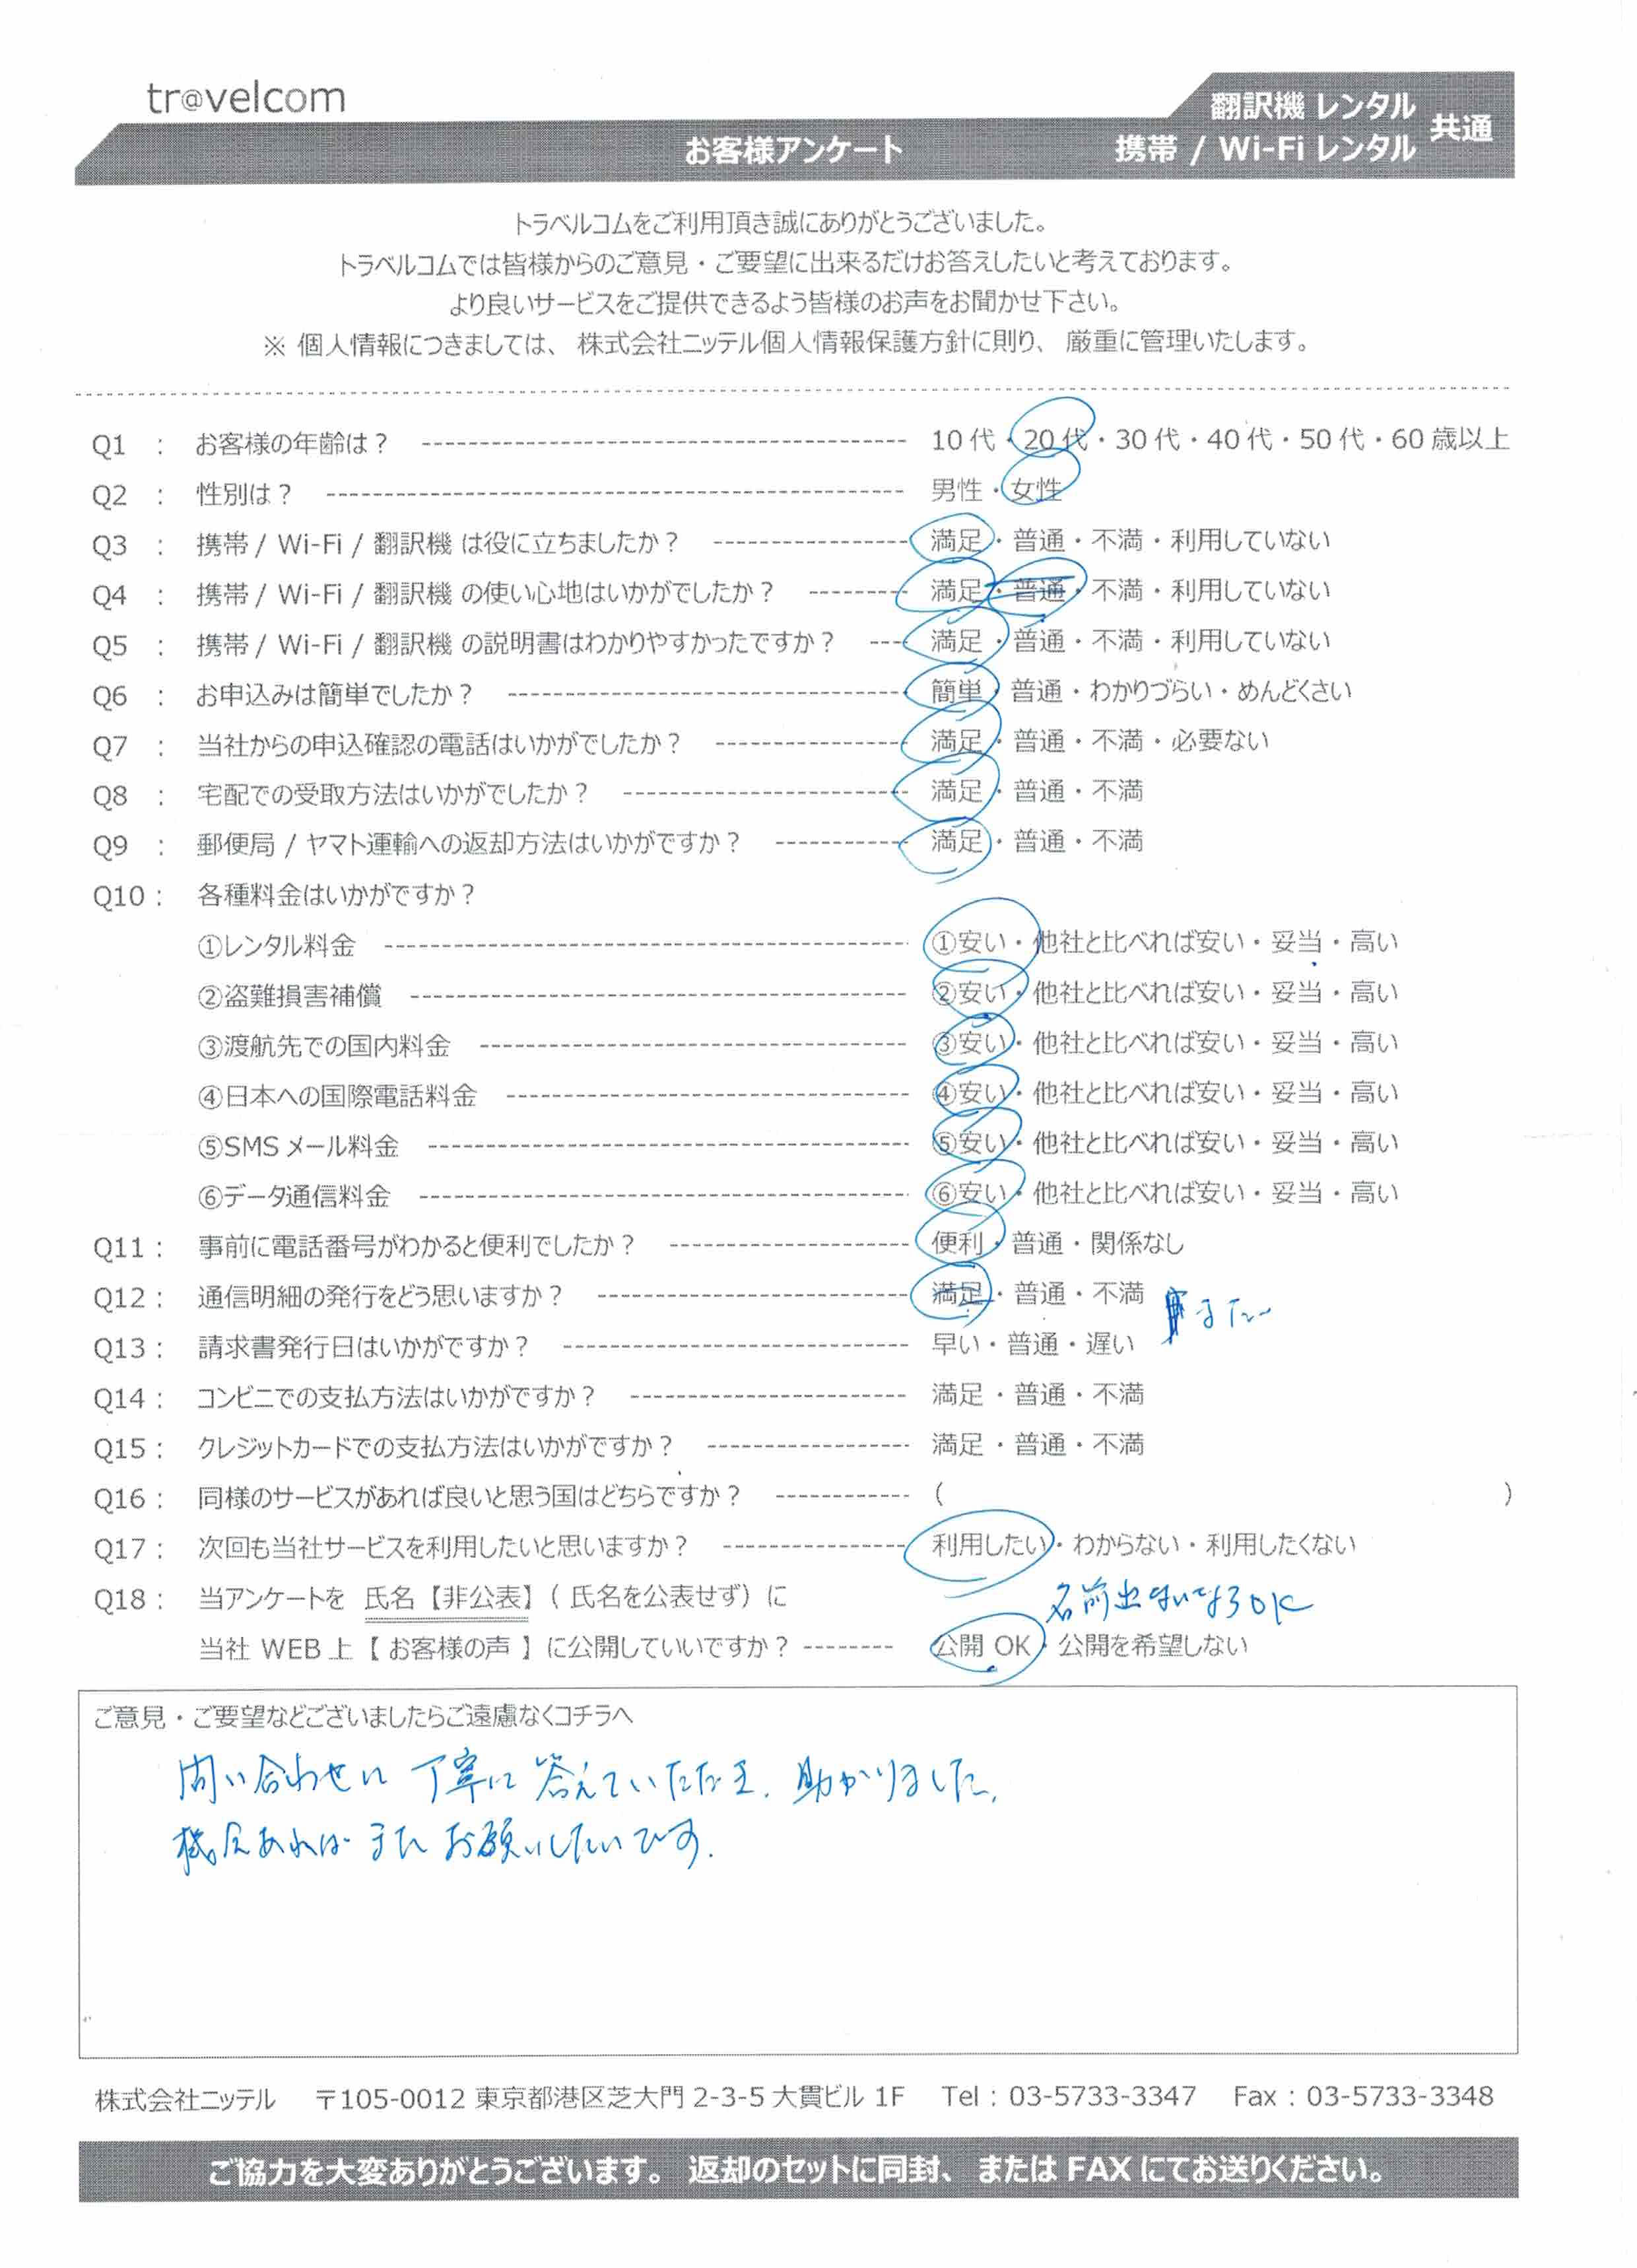 tr@velcom
お客様アンケート
翻訳機 レンタル
携帯 / Wi-Fi レンタル
共通
トラベルコムをご利用頂き誠にありがとうございました。
トラベルコムでは皆様からのご意見・ご要望に出来るだけお答えしたいと考えております。
より良いサービスをご提供できるよう皆様のお声をお聞かせ下さい。
※ 個人情報につきましては、 株式会社ニッテル個人情報保護方針に則り、 厳重に管理いたします。
Q1 : お客様の年齢は? 10代・20代・30代・40代・50代・60歳以上
Q2 : 性別は? 男性・女性
Q3 : 携帯 / Wi-Fi / 翻訳機 は役に立ちましたか? 満足・普通・不満・利用していない
Q4 : 携帯 / Wi-Fi / 翻訳機 の使い心地はいかがでしたか? 満足・普通・不満・利用していない
Q5 : 携帯 / Wi-Fi / 翻訳機 の説明書はわかりやすかったですか? 満足・普通・不満・利用していない
Q6 : お申込みは簡単でしたか? 簡単・普通・わかりづらい・めんどくさい
Q7 : 当社からの申込確認の電話はいかがでしたか? 満足・普通・不満・必要ない
Q8 : 宅配での受取方法はいかがでしたか? 満足・普通・不満
Q9 : 郵便局 / ヤマト運輸への返却方法はいかがですか? 満足・普通・不満
Q10 : 各種料金はいかがですか?
①レンタル料金 ①安い・他社と比べれば安い・妥当・高い
②盗難損害補償 ②安い・他社と比べれば安い・妥当・高い
③渡航先での国内料金 ③安い・他社と比べれば安い・妥当・高い
④日本への国際電話料金 ④安い・他社と比べれば安い・妥当・高い
⑤SMSメール料金 ⑤安い・他社と比べれば安い・妥当・高い
⑥データ通信料金 ⑥安い・他社と比べれば安い・妥当・高い
Q11 : 事前に電話番号がわかると便利でしたか? 便利・普通・関係なし
Q12 : 通信明細の発行をどう思いますか? 満足・普通・不満
まだ
Q13 : 請求書発行日はいかがですか? 早い・普通・遅い
Q14 : コンビニでの支払方法はいかがですか? 満足・普通・不満
Q15 : クレジットカードでの支払方法はいかがですか? 満足・普通・不満
Q16 : 同様のサービスがあれば良いと思う国はどちらですか? ( )
Q17 : 次回も当社サービスを利用したいと思いますか? 利用したい・わからない・利用したくない
Q18 : 当アンケートを 氏名【非公表】( 氏名を公表せず) に
名前出さないならOK
当社 WEB上【 お客様の声 】に公開していいですか? 公開 OK・公開を希望しない
ご意見・ご要望などございましたらご遠慮なくコチラへ
問い合わせに 丁寧に 答えていただき、助かりました。
機会あれば またお願いしたいです。
株式会社ニッテル 〒105-0012 東京都港区芝大門 2-3-5 大貫ビル 1F Tel : 03-5733-3347 Fax : 03-5733-3348
ご協力を大変ありがとうございます。 返却のセットに同封、 または FAX にてお送りください。